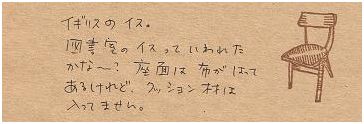 イギリスのイス。
図書室のイスっていわれた
かな～？座面は布がはって
あるけれど、クッション材は
入ってません。